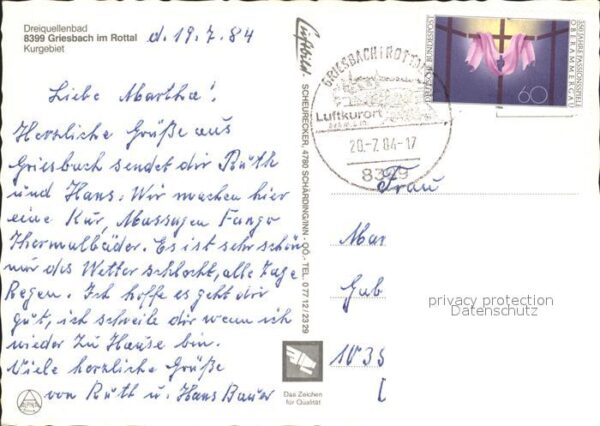 Dreiquellenbad
8399 Griesbach im Rottal
Kurgebiet
d. 19.7.84
Liebe Martha!
Herzliche Grüße aus
Griesbach sendet dir Ruth
und Hans. Wir machen hier
eine Kur, Massagen Fango
Thermalbäder. Es ist sehr schön
nur das Wetter schlecht, alle Tage
Regen. Ich hoffe es geht dir
gut, ich schreibe dir wenn ich
wieder zu Hause bin.
Viele herzliche Grüße
von Ruth u. Hans Bauer
Luftbild - SCHEURECKER, 4780 SCHÄRDING/INN - OÖ. - TEL. 0 77 12 / 23 29
Das Zeichen
für Qualität
GRIESBACH I ROTTAL
Luftkurort
20.-7.84-17
8399
DEUTSCHE BUNDESPOST
60
350 JAHRE PASSIONSSPIELE
OBERAMMERGAU
Frau
Mar
Gab
privacy protection
Datenschutz